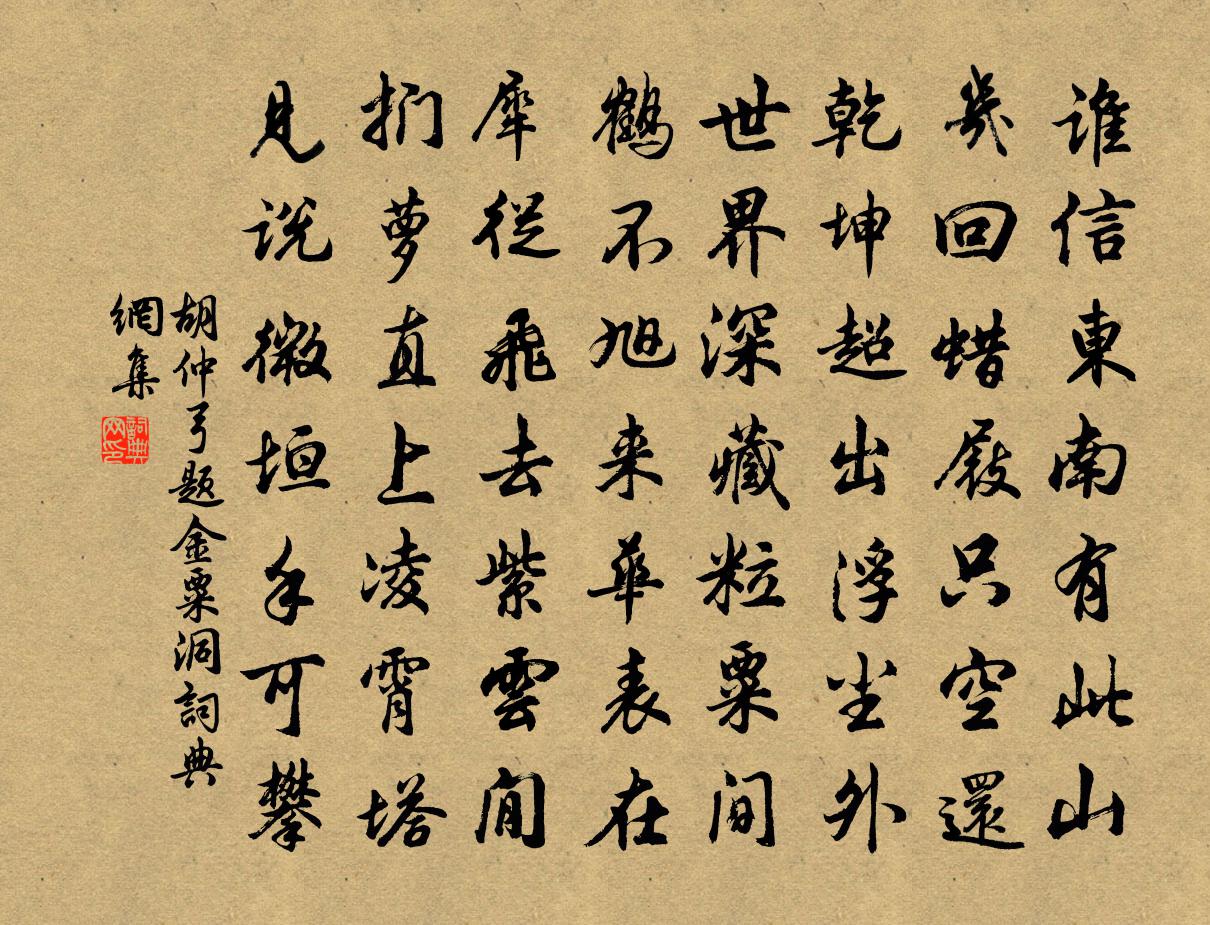 谁信東南有此山
幾回蜡屐只空還
乾坤超出浮尘外
世界深藏粒粟间
鶴不旭来華表在
犀從飛去紫雲间
捫萝直上凌霄塔
見说微垣手可攀
胡仲弓题金粟洞詞典
網集
詞典
网印